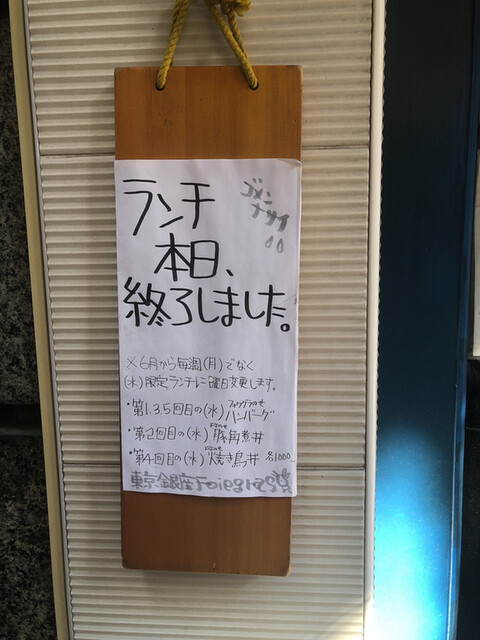 ランチ
ゴメン
ナサイ
本日、
終了しました。
×6月から毎週(月)でなく
(水)限定ランチに曜日変更します。
・第1.3.5回目の(水) フォアグラのせ ハンバーグ
・第2回目の(水) 豚角煮丼
・第4回目の(水) 焼き鳥丼 各1000
東京銀座Foiegras